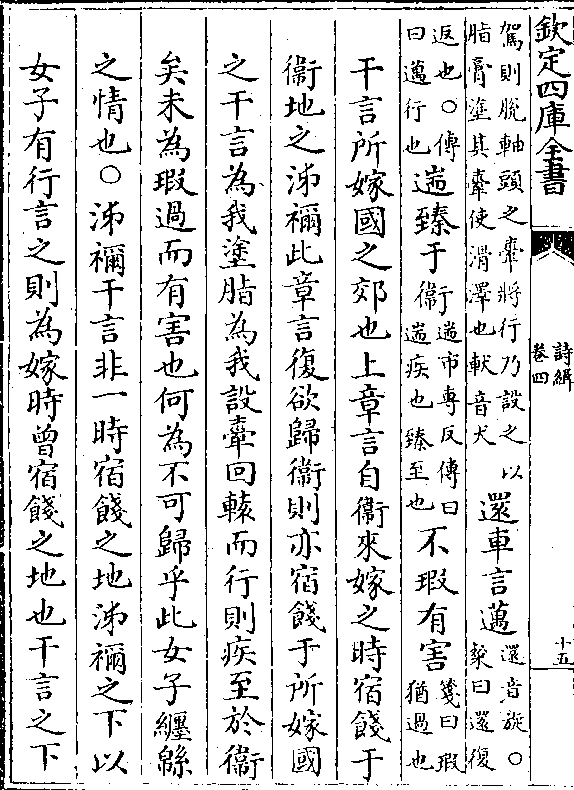 欽定四庫全書
詩緝
卷四
十五
駕則脫軸頭之舝將行乃設之以
脂膏塗其舝使滑澤也軑音犬
還車言邁
還音旋○
粲曰還復
返也○傳
曰邁行也
遄臻于衞
遄市專反傳曰
遄疾也臻至也
不瑕有害
箋曰瑕
猶過也
干言所嫁國之郊也上章言自衞來嫁之時宿餞于
衞地之泲禰此章言復欲歸衞則亦宿餞于所嫁國
之干言為我塗脂為我設舝回轅而行則疾至於衞
矣未為瑕過而有害也何為不可歸乎此女子纏緜
之情也○泲禰干言非一時宿餞之地泲禰之下以
女子有行言之則為嫁時曾宿餞之地也干言之下